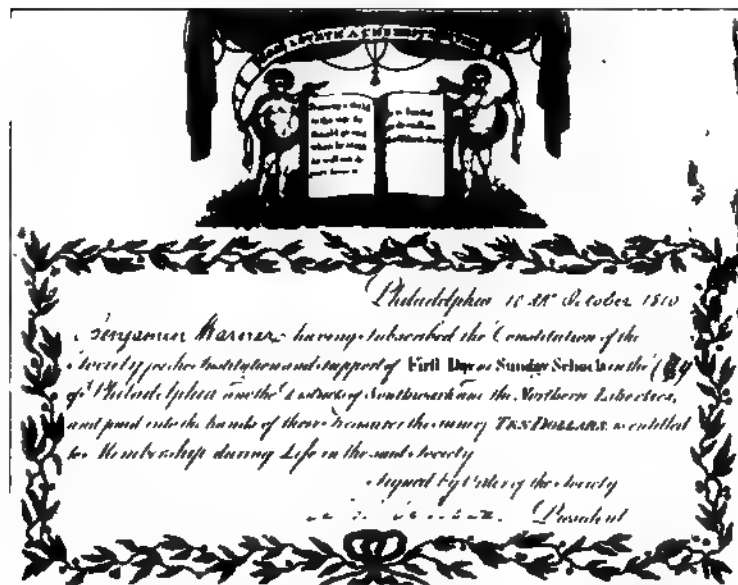 Train up a child
in the way he
should go and
when he
he will not de
part from it
Philadelphia 10 October 1810
Benjamin Warner having subscribed the Constitution of the
Society for the Institution and support of First Day or Sunday Schools in the City
of Philadelphia and the Districts of Southwark and the Northern Liberties,
and paid into the hands of their Treasurer the sum of TEN DOLLARS is entitled
to Membership during Life in the said Society
Signed by Order of the Society
President